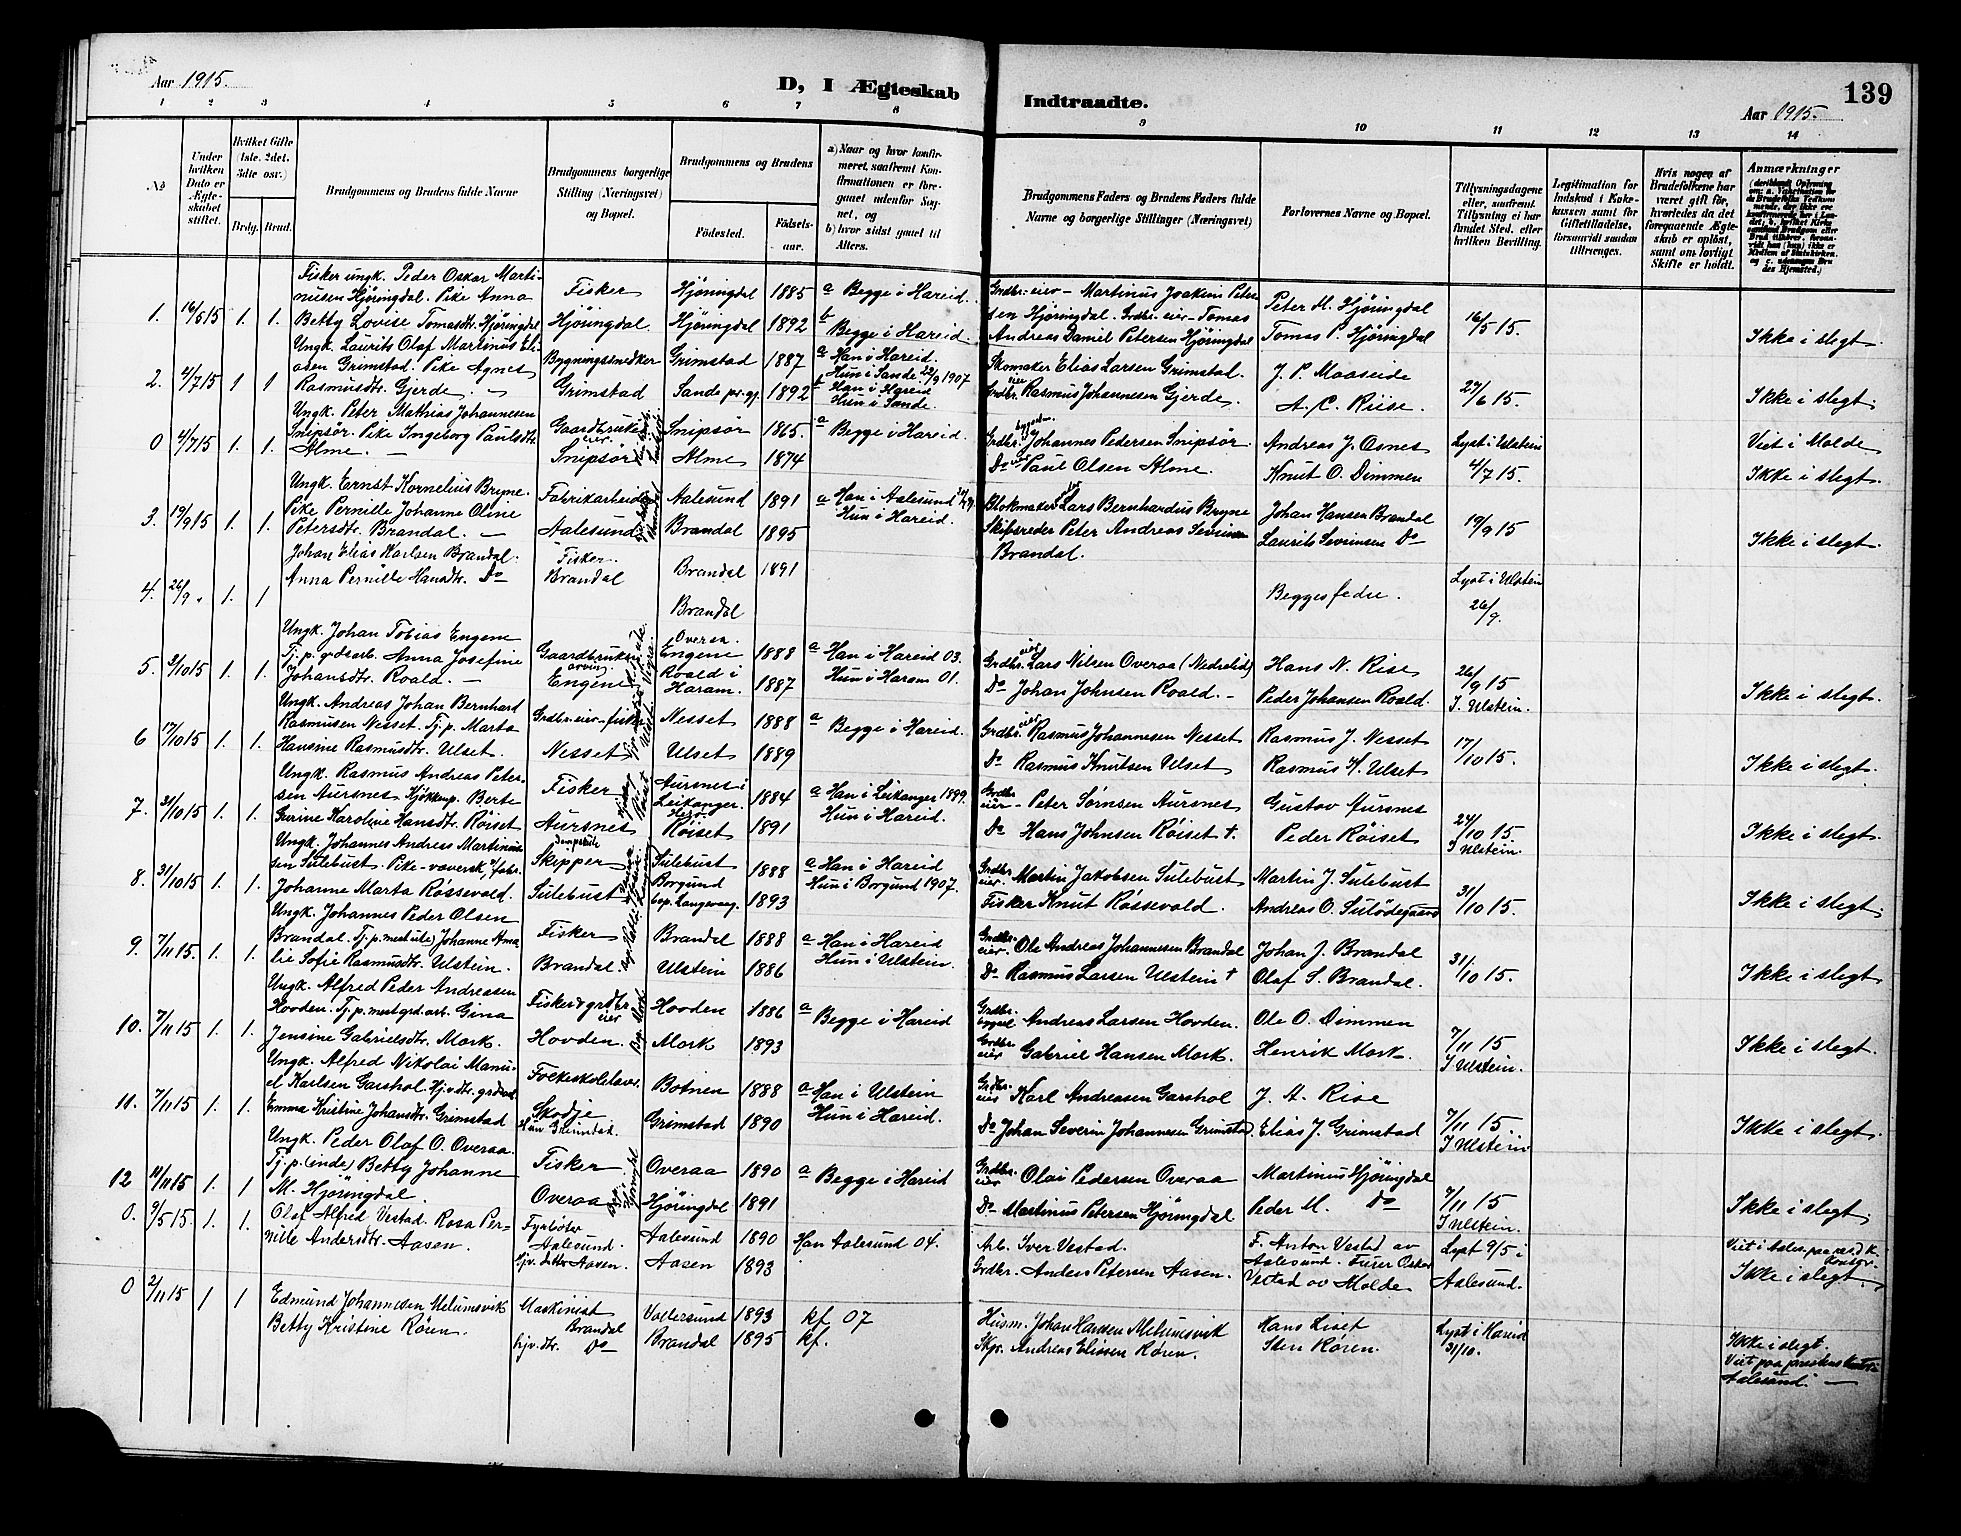 Aar 1915.
D, I Ægteskab
Indtraadte.
Aar 1915.
139
1 2 3 4 5 6 7 8 9 10 11 12 13 14
No
Under hvilken Dato er Ægteskabet stiftet.
Hvilket Gifte (1ste, 2det, 3die osv.)
Brdg. Brud.
Brudgommens og Brudens fulde Navne
Brudgommens borgerlige Stilling (Næringsvei) og Bopæl.
Brudgommens og Brudens
Fødested.
Fødselsaar.
a) Naar og hvor konfirmeret, saafremt Konfirmationen er foregaaet udenfor Sognet, og
b) hvor sidst gaaet til Alters.
Brudgommens Faders og Brudens Faders fulde Navne og borgerlige Stillinger (Næringsvei)
Forlovernes Navne og Bopæl.
Tillysningsdagene eller, saafremt Tillysning ei har fundet Sted, efter hvilken Bevilling.
Legitimation for Indskud i Enkekassen samt for Giftetilladelse, forsaavidt saadan tiltrænges.
Hvis nogen af Brudefolkene har været gift før, hvorledes da det foregaaende Ægteskab er opløst, samt om lovligt Skifte er holdt.
Anmærkninger
1. 16/5 15 1. 1. Fisker ungk. Peder Oskar Martinusen Hjøringdal. Pike Anna Betty Lovise Tomasdtr. Hjøringdal
Fisker Hjøringdal. Hjøringdal 1885 Hjøringdal 1892 a Begge i Hareid. b Begge i Hareid
Grdbr. eier - Martinus Joakim Petersen Hjøringdal. Grdbr. eier - Tomas Andreas Daniel Petersen Hjøringdal
Peter M. Hjøringdal Tomas P. Hjøringdal 16/5 15. Ikke i slegt.
2. 4/7 15 1 1 Ungk. Laurits Olaf Martinus Eliasen Grimstad. Pike Agnes Rasmusdtr. Gjerde. —
Bygningssnedker Grimstad Grimstad 1887 Sande pr.gj. 1892 a Han i Hareid. Hun i Sande 22/9 1907 b Han i Hareid Hun i Sande.
Skomaker Elias Larsen Grimstad. Grdbr. eier Rasmus Johannesen Gjerde.
J. P. Maaseide A. C. Riise. 27/6 15. Ikke i slegt.
0 4/7 15 1. 1. Ungk. Peter Mathias Johannesen Snipsör. Pike Ingeborg Paulsdtr. Alme. —
Gaardbruker eier Snipsör Snipsör 1865. Alme 1874 a Begge i Hareid.
Grdbr. Johannes Pedersen Snipsör. Do Paul Olsen Alme.
Andreas J. Osnes Knut O. Dimmen Lyst i Ulstein 4/7 15. Viet i Molde Ikke i slegt.
3. 19/9 15 1. 1. Ungk. Ernst Kornelius Bryne. Pike Pernille Johanne Oline Petersdtr. Brandal. —
Fabrikarbeider Aalesund Aalesund 1891 Brandal 1895 a Han i Aalesund Hun i Hareid.
Blokmaker Lars Bernhardus Bryne Skibsreder Peter Andreas Severinsen Brandal.
Johan Hansen Brandal Laurits Sevrinsen Do 19/9 15 Ikke i slegt.
4. 26/9 " 1. 1 Johan Elias Karlsen Brandal. Anna Pernille Hansdtr. Do
Fisker. Brandal Brandal 1891 Brandal
Begges fedre. Lyst i Ulstein 26/9.
5 3/10 15 1. 1. Ungk. Johan Tobias Engene Tj. p. gdsarb. Anna Josefine Johansdtr. Roald. —
Gaardbruker Engene Overaa. Engene 1888 Roald i Haram. 1887 a Han i Hareid 03. Hun i Haram 01.
Grdbr. eier Lars Nilsen Overaa (Nedrelid) Do Johan Johnsen Roald. -
Hans N. Rise Peder Johansen Roald. 26/9 15 I Ulstein. Ikke i slegt.
6 17/10 15 1. 1. Ungk. Andreas Johan Bernhard Rasmusen Nesset. Tj. p. Marta Hansine Rasmusdtr. Ulset.
Grdbr. eier - fisker Nesset Nesset 1888 Ulset 1889 a Begge i Hareid.
Grdbr. eier Rasmus Johannesen Nesset Do Rasmus Knutsen Ulset
Rasmus J. Nesset Rasmus K. Ulset 17/10 15. Ikke i slegt.
7. 31/10 15 1. 1. Ungk. Rasmus Andreas Petersen Aursnes. Kjøkkenp. Berte Gurine Karoline Hansdtr. Röiset
Fisker Aursnes Aursnes i Leikanger. 1884 Röiset 1891 a Han i Leikanger 1899. Hun i Hareid.
Grdbr. eier - Peter Sørnsen Aursnes Do Hans Johnsen Röiset †.
Gustav Aursnes Peder Röiset 24/10 15 I Ulstein. Ikke i slegt.
8. 31/10 15 1. 1. Ungk. Johannes Andreas Martinusen Sulebust. Pike - væversk. v/fabr. Johanne Marta Røssevold.
Skipper Sulebust Sulebust 1888 Borgund bsp. Langevaag. 1893 a Han i Hareid Hun i Borgund 1907.
Grdbr. eier. Martin Jakobsen Sulebust Fisker Knut Røssevold.
Martin J. Sulebust Andreas O. Sulödegaard 31/10 15. Ikke i slegt.
9. 7/11 15. 1. 1. Ungk. Johannes Peder Olsen Brandal. Tj. p. mest ute) Johanne Amalie Sofie Rasmusdtr. Ulstein.
Fisker Brandal. Brandal 1888 Ulstein 1886 a Han i Hareid Hun i Ulstein.
Grdbr. eier. Ole Andreas Johannesen Brandal Do Rasmus Larsen Ulstein †
Johan J. Brandal Olaf S. Brandal. 31/10 15. Ikke i slegt.
10. 7/11 15 1. 1. Ungk. Alfred Peder Andreasen Hovden. Tj. p. mest grd.arb. Gina Jensine Gabrielsdtr. Mork.
Fisker & grdbr. eier Hovden. Hovden 1886 Mork 1893 a Begge i Hareid
Grdbr. Andreas Larsen Hovden. Grdbr. eier Gabriel Hansen Mork.
Ole O. Dimmen Henrik Mork. 7/11 15 I Ulstein. Ikke i slegt.
11. 7/11 15 1. 1. Ungk. Alfred Nikolai Manuel Karlsen Garshol Hjv.dtr. grdarb. Emma Kristine Johansdtr. Grimstad
Folkeskolelærer. Skodje Hun Grimstad. Botnen 1888 Grimstad 1890 a Han i Ulstein Hun i Hareid.
Grdbr. eier Karl Andreasen Garshol Do Johan Severin Johannesen Grimstad.
J. A. Rise Elias J. Grimstad 7/11 15. I Ulstein Ikke i slegt.
12 14/11 15 1. 1 Ungk. Peder Olaf O. Overaa. Tj. p. (inde) Betty Johanne M. Hjøringdal.
Fisker Overaa Overaa 1890 Hjøringdal 1891 a Begge i Hareid
Grdbr. eier. Olai Pedersen Overaa Do Martinus Petersen Hjøringdal
Martinus Hjøringdal Peder M. Do 7/11 15 I Ulstein. Ikke i slegt.
0. 9/5 15. 1. 1. Olaf Alfred Vestad. Rosa Pernille Andersdtr. Aasen.
Fyrbøter Aalesund. hjv. datter Aasen. Aalesund 1890 Aasen 1893 Han Aalesund 04.
Arb. Iver Vestad. Grdbr. Anders Petersen Aasen.
F. Anton Vestad av Aalesund. Furer Oskar Vestad av Molde Lyst 9/5 i Aalesund. Viet i Aales. paa res. d K. kontor. Ikke i slegt.
0 2/11 15 1 1 Edmund Johannesen Melumsvik Betty Kristine Røren.
Maskinist Brandal hjv. dtr. Do Vallersund 1893 Brandal 1895 kf 07 kf.
Husm. Johan Hansen Melumsvik Skpr. Andreas Elissen Røren.
Hans Liset Sten Røren. Lyst i Hareid 31/10. Ikke i slegt. Viet paa prestens kontor i Aalesund. —